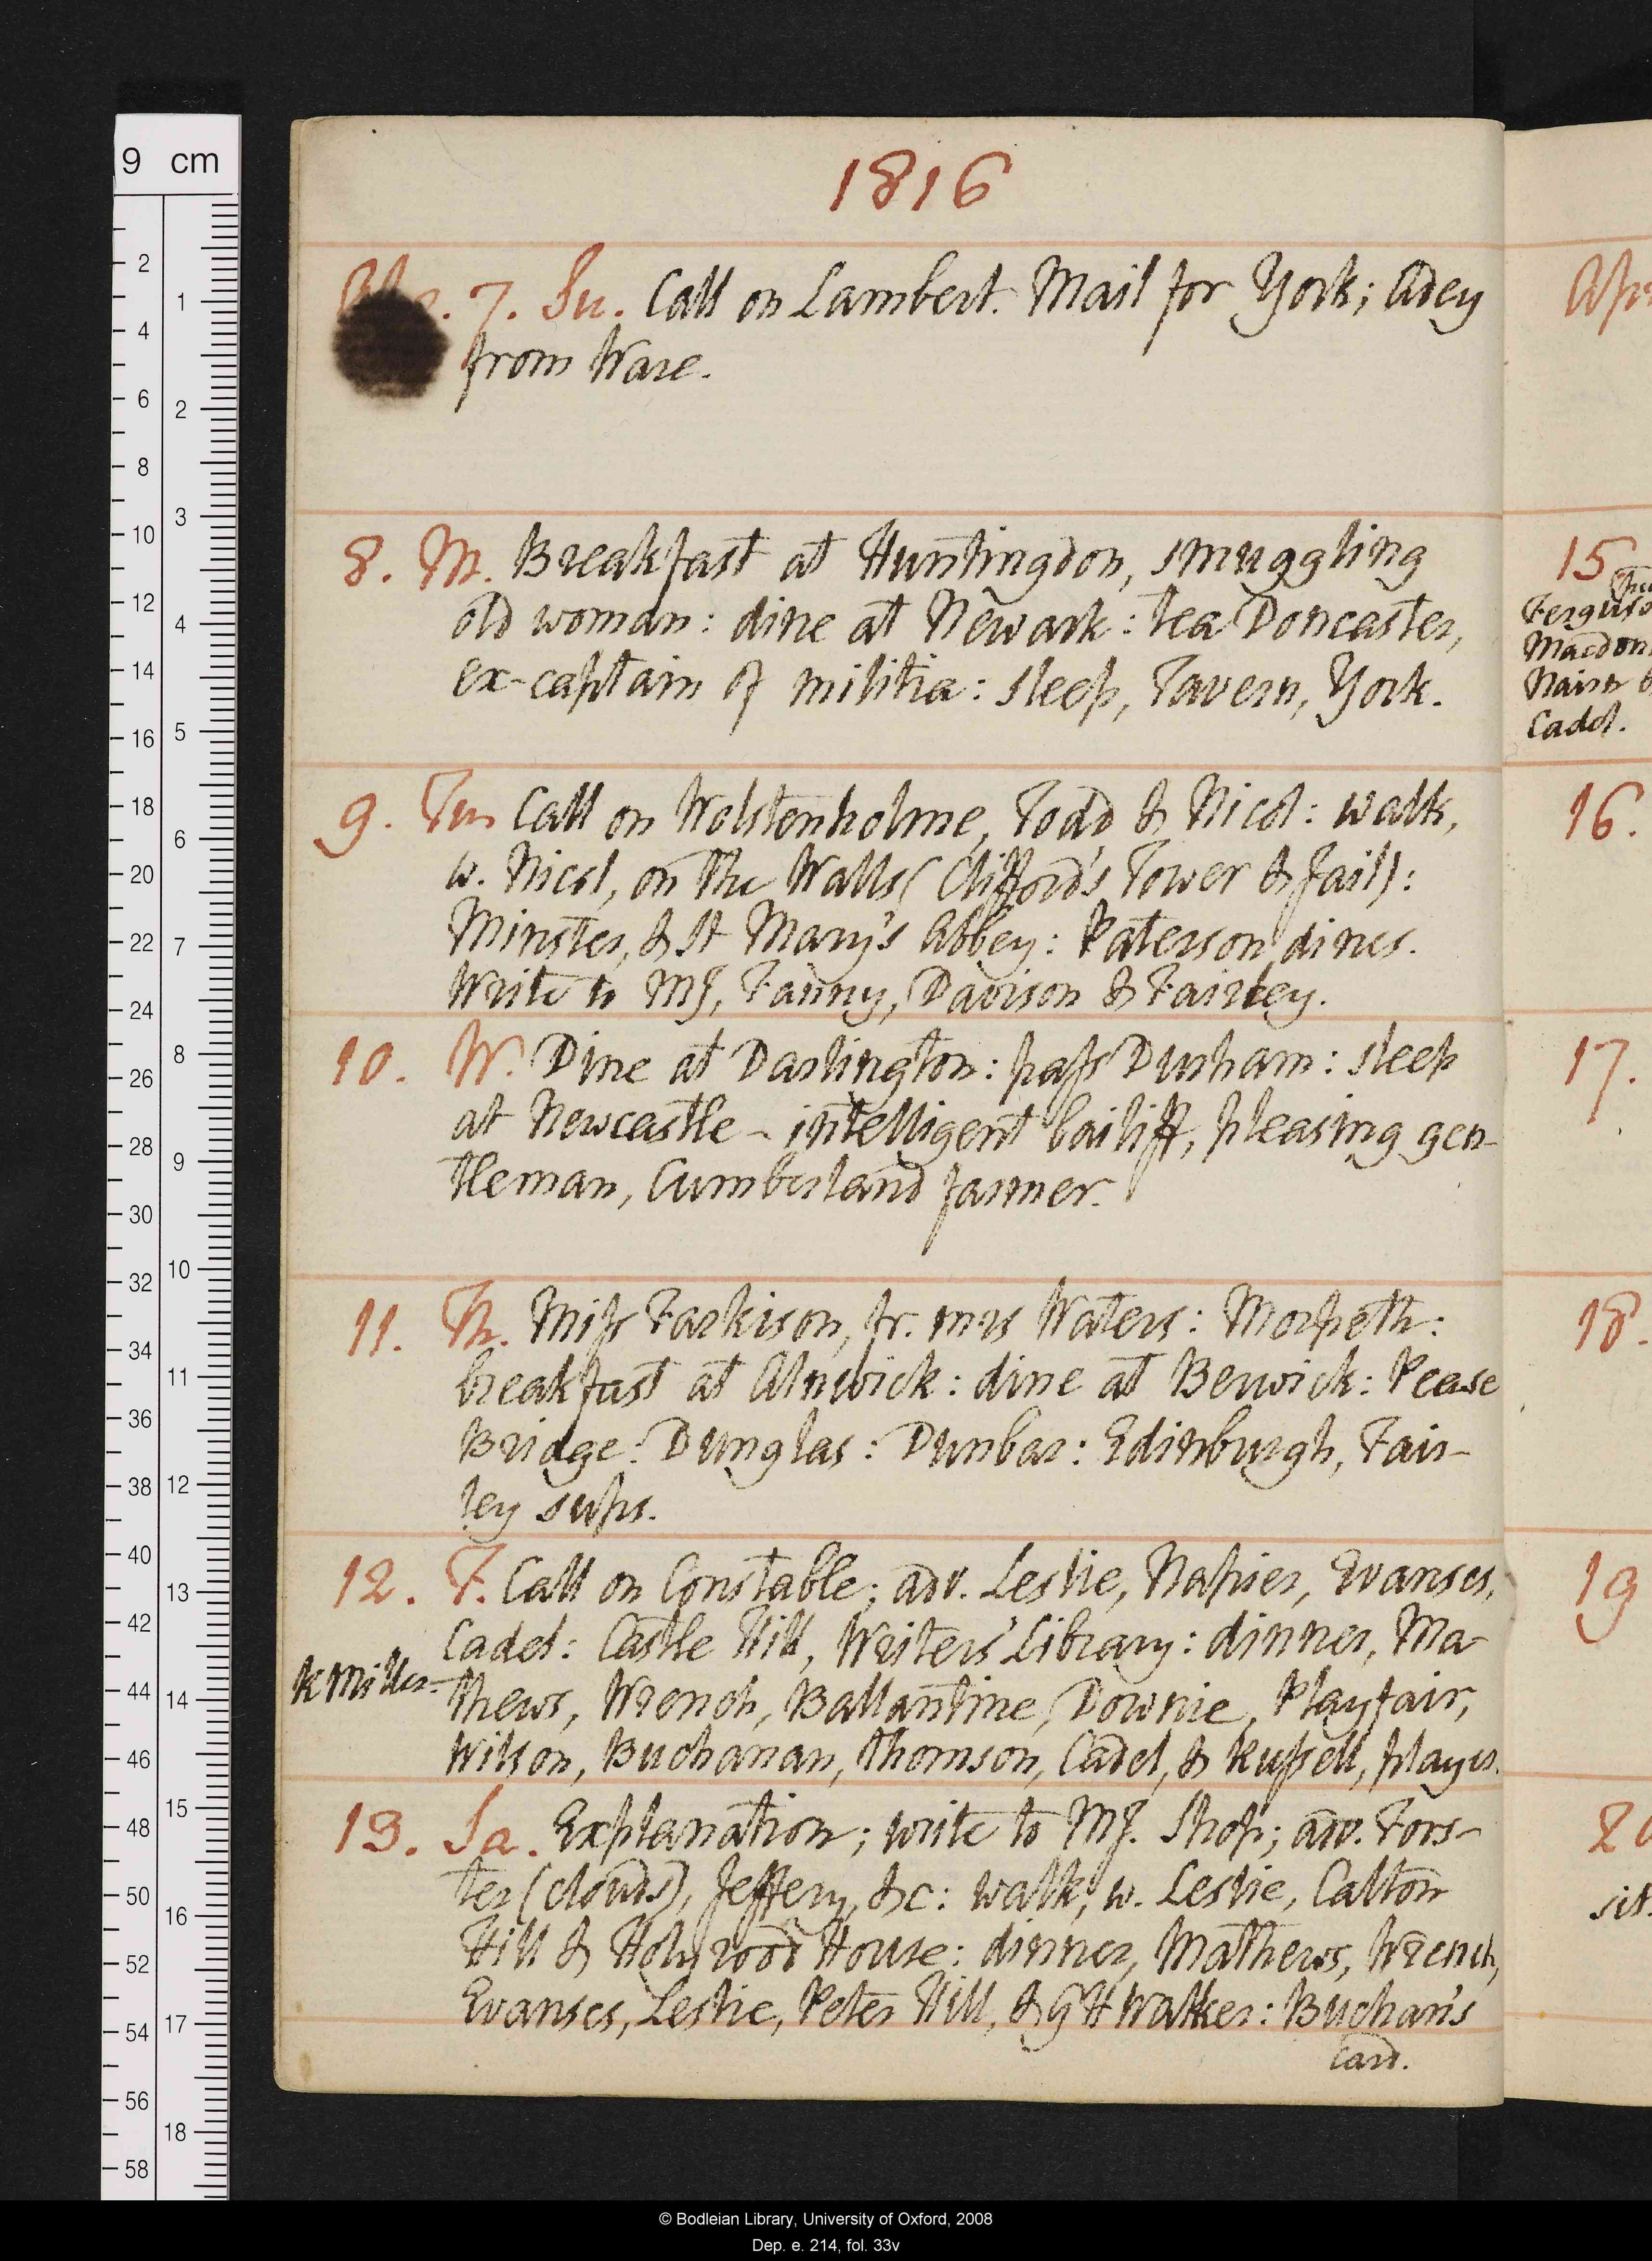 1816
7. Su. Call on Lambert. Mail for York; Adey
from Ware.
8. M. Breakfast at Huntingdon, smuggling
old woman: dine at Newark: tea Doncaster,
ex-captain of militia: sleep, Tavern, York.
9. Tu Call on Wolstenholme, Todd & Nicol: walk,
w. Nicol, on the Walls (Clifford's Tower & Jail):
Minster, & St Mary's Abbey: Paterson dines.
Write to MJ, Fanny, Davison & Fairley.
10. W. Dine at Darlington: pass Durham: sleep
at Newcastle - intelligent bailiff, pleasing gen-
tleman, Cumberland farmer.
11. Th. Miss Parkison, fr. mrs Waters: Morpeth:
breakfast at Alnwick: dine at Berwick: Pease
Bridge: Dunglas: Dunbar: Edinburgh, Fair-
ley sups.
12. F. Call on Constable; adv. Leslie, Napier, Evanses,
Cadel: Castle Hill, Writers' Library: dinner, Ma-
K Miller
thews, Wrench, Ballantine, Downie, Playfair,
Wilson, Buchanan, Thomson, Cadel, & Russell, player.
13. Sa. Explanation; write to MJ. Shop; adv. Fors-
ter (clouds), Jeffery, &c: walk, w. Leslie, Calton
Hill & Holyrood House: dinner, Mathews, Wrench,
Evanses, Leslie, Peter Hill, & G H Walker: Buchan's
card.
15
Macdon
Cadel.
16.
17.
18.
19
9 cm
2
4
6
8
10
12
14
16
18
20
22
24
26
28
30
32
34
36
38
40
42
44
46
48
50
52
54
56
58
1
2
3
4
5
6
7
8
9
10
11
12
13
14
15
16
17
18
© Bodleian Library, University of Oxford, 2008
Dep. e. 214, fol. 33v